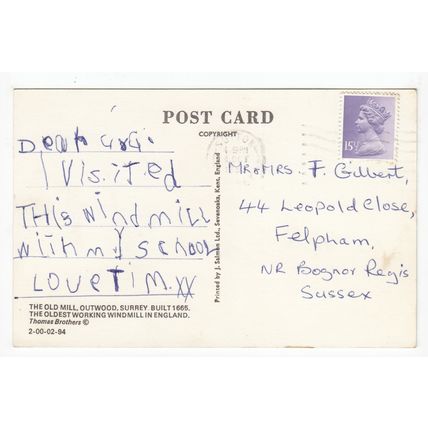 POST CARD
COPYRIGHT
Dear G.G.
I visited
THis windmill
with my school
Love Tim. xx
THE OLD MILL, OUTWOOD, SURREY. BUILT 1665.
THE OLDEST WORKING WINDMILL IN ENGLAND.
Thomas Brothers ©
2-00-02-94
Printed by J. Salmon Ltd., Sevenoaks, Kent, England
15½P
Mr & Mrs. F. Gilbert,
44 Leopold Close,
Felpham,
NR Bognor Regis
Sussex